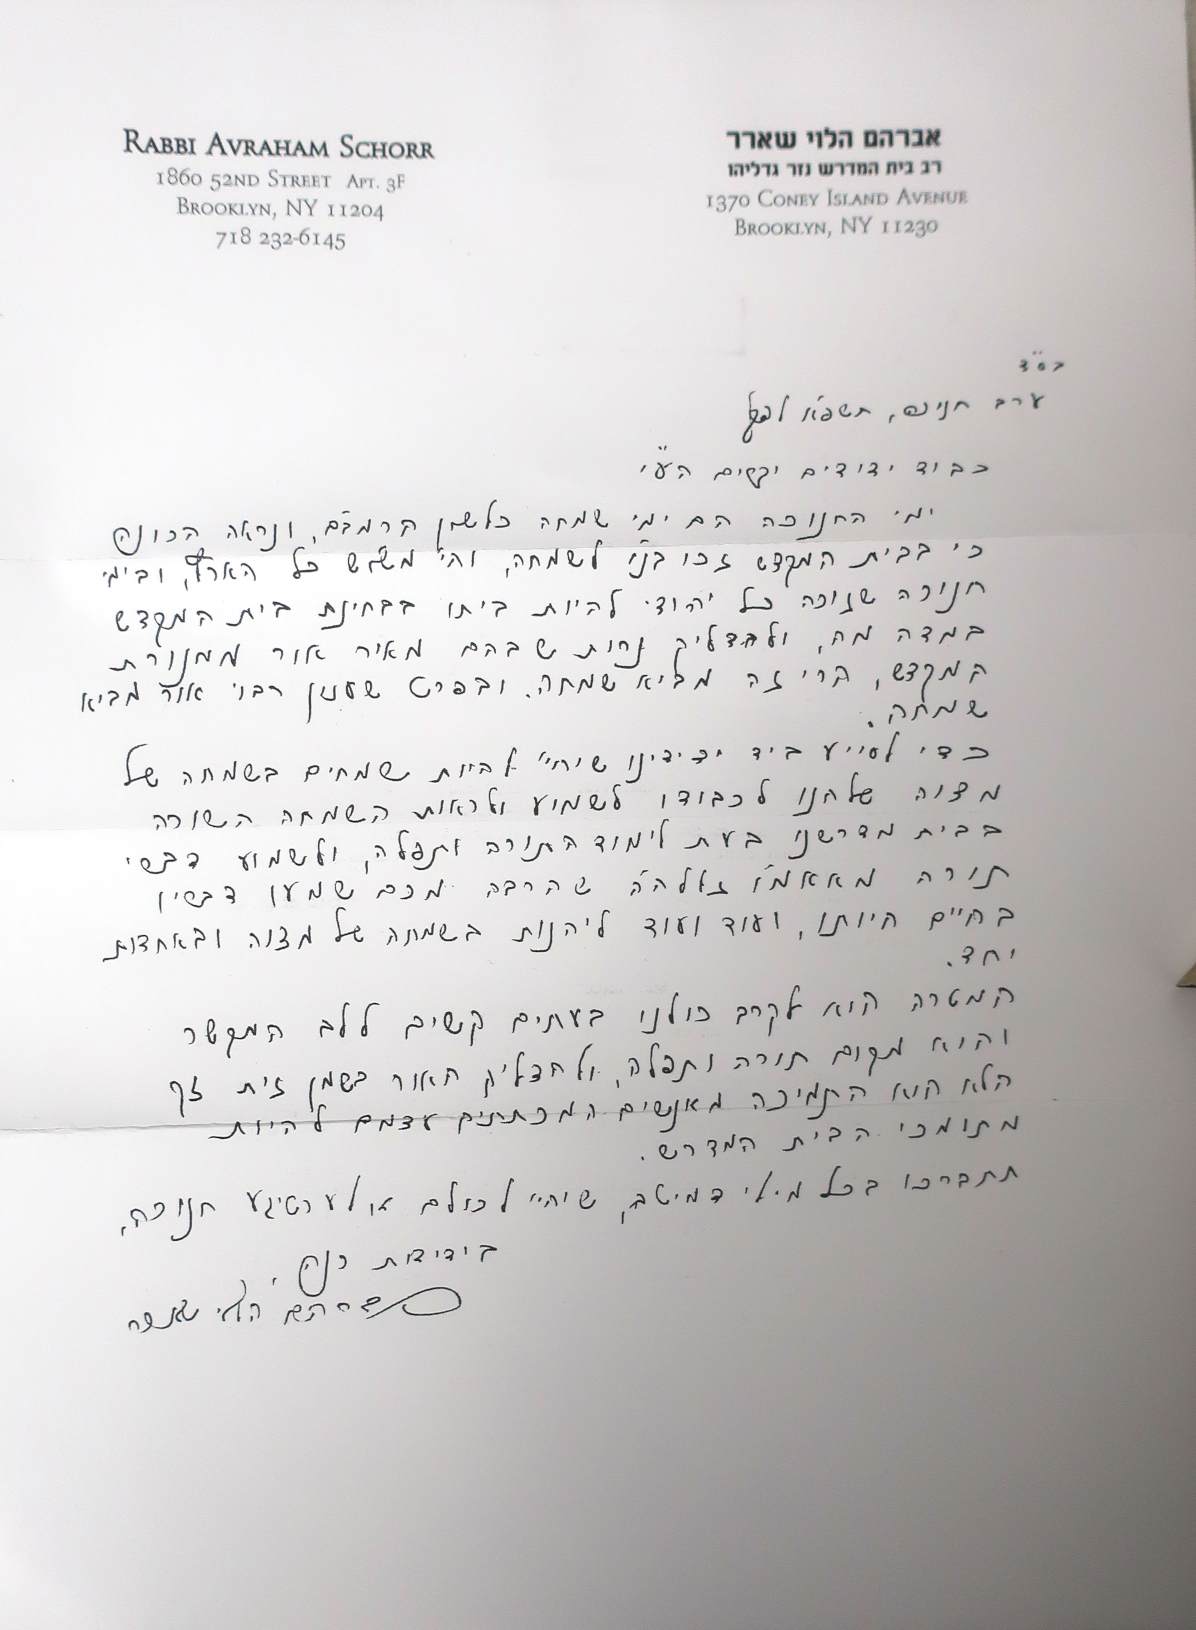 RABBI AVRAHAM SCHORR
1860 52ND STREET APT. 3F
BROOKLYN, NY 11204
718 232-6145
אברהם הלוי שארר
רב בית המדרש נזר גדליהו
1370 CONEY ISLAND AVENUE
BROOKLYN, NY 11230
בס"ד
ערב חנוכה, תשפ"א לפ"ק
כבוד ידידים יקרים הע"י
ימי החנוכה הם ימי שמחה כלשון הרמב"ם, ונראה הכונה
כי בבית המקדש זכו בנ"י לשמחה, והי' משוש כל הארץ, ובימי
חנוכה שזוכה כל יהודי להיות ביתו בבחינת בית המקדש
במדה מה, ולהדליק נרות שבהם מאיר אור ממנורת
המקדש, הרי זה מביא שמחה. ובפרט שענין רבוי אור מביא
שמחה.
כדי לסייע ביד ידידינו שיחי' להיות שמחים בשמחה של
מצוה שלחנו לכבודו לשמוע ולראות השמחה השורה
בבית מדרשנו בעת לימוד התורה ותפלה, ולשמוע דברי
תורה מאאמו"ר זללה"ה שהרבה מכם שמעו דבריו
בחיים חיותו, ועוד ועוד ליהנות בשמחה של מצוה ובאחדות
יחד.
המטרה הוא לקרב כולנו בעתים קשים ללב המקשר
והוא מקום תורה ותפלה, ולהדליק האור בשמן זית זך
הלא הוא התמיכה מאנשים המכתתים עצמם להיות
מתומכי הבית המדרש.
תתברכו בכל מילי דמיטב, שיהי' לכולם א ליכטיגע חנוכה,
בידידות רבה,
אברהם הלוי שארר